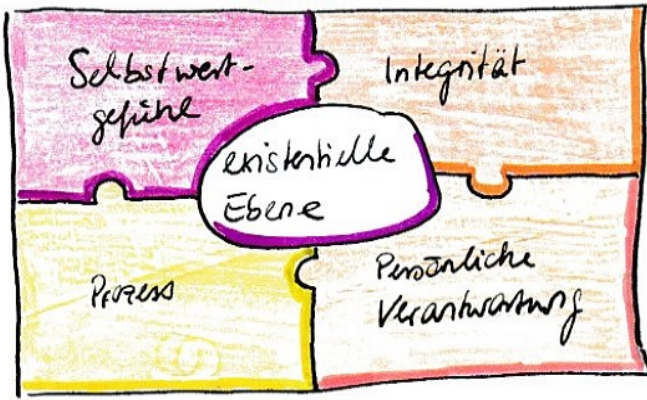 Selbstwert-
gefühl
Integrität
existentielle
Ebene
Prozess
Persönliche
Verantwortung